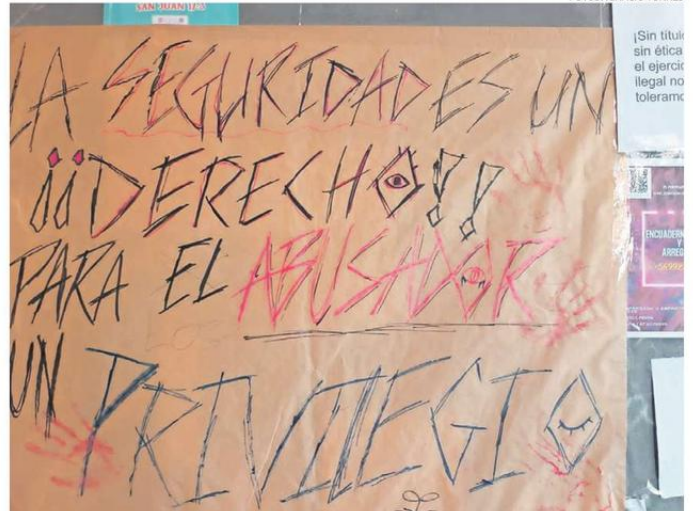 SAN JUAN 12:3
LA SEGURIDAD ES UN
¡¡DERECHO!!
PARA EL ABUSADOR
UN PRIVILEGIO
¡Sin títul
sin ética
el ejercic
ilegal no
toleramo
ENCUADERN
Y
ARREG